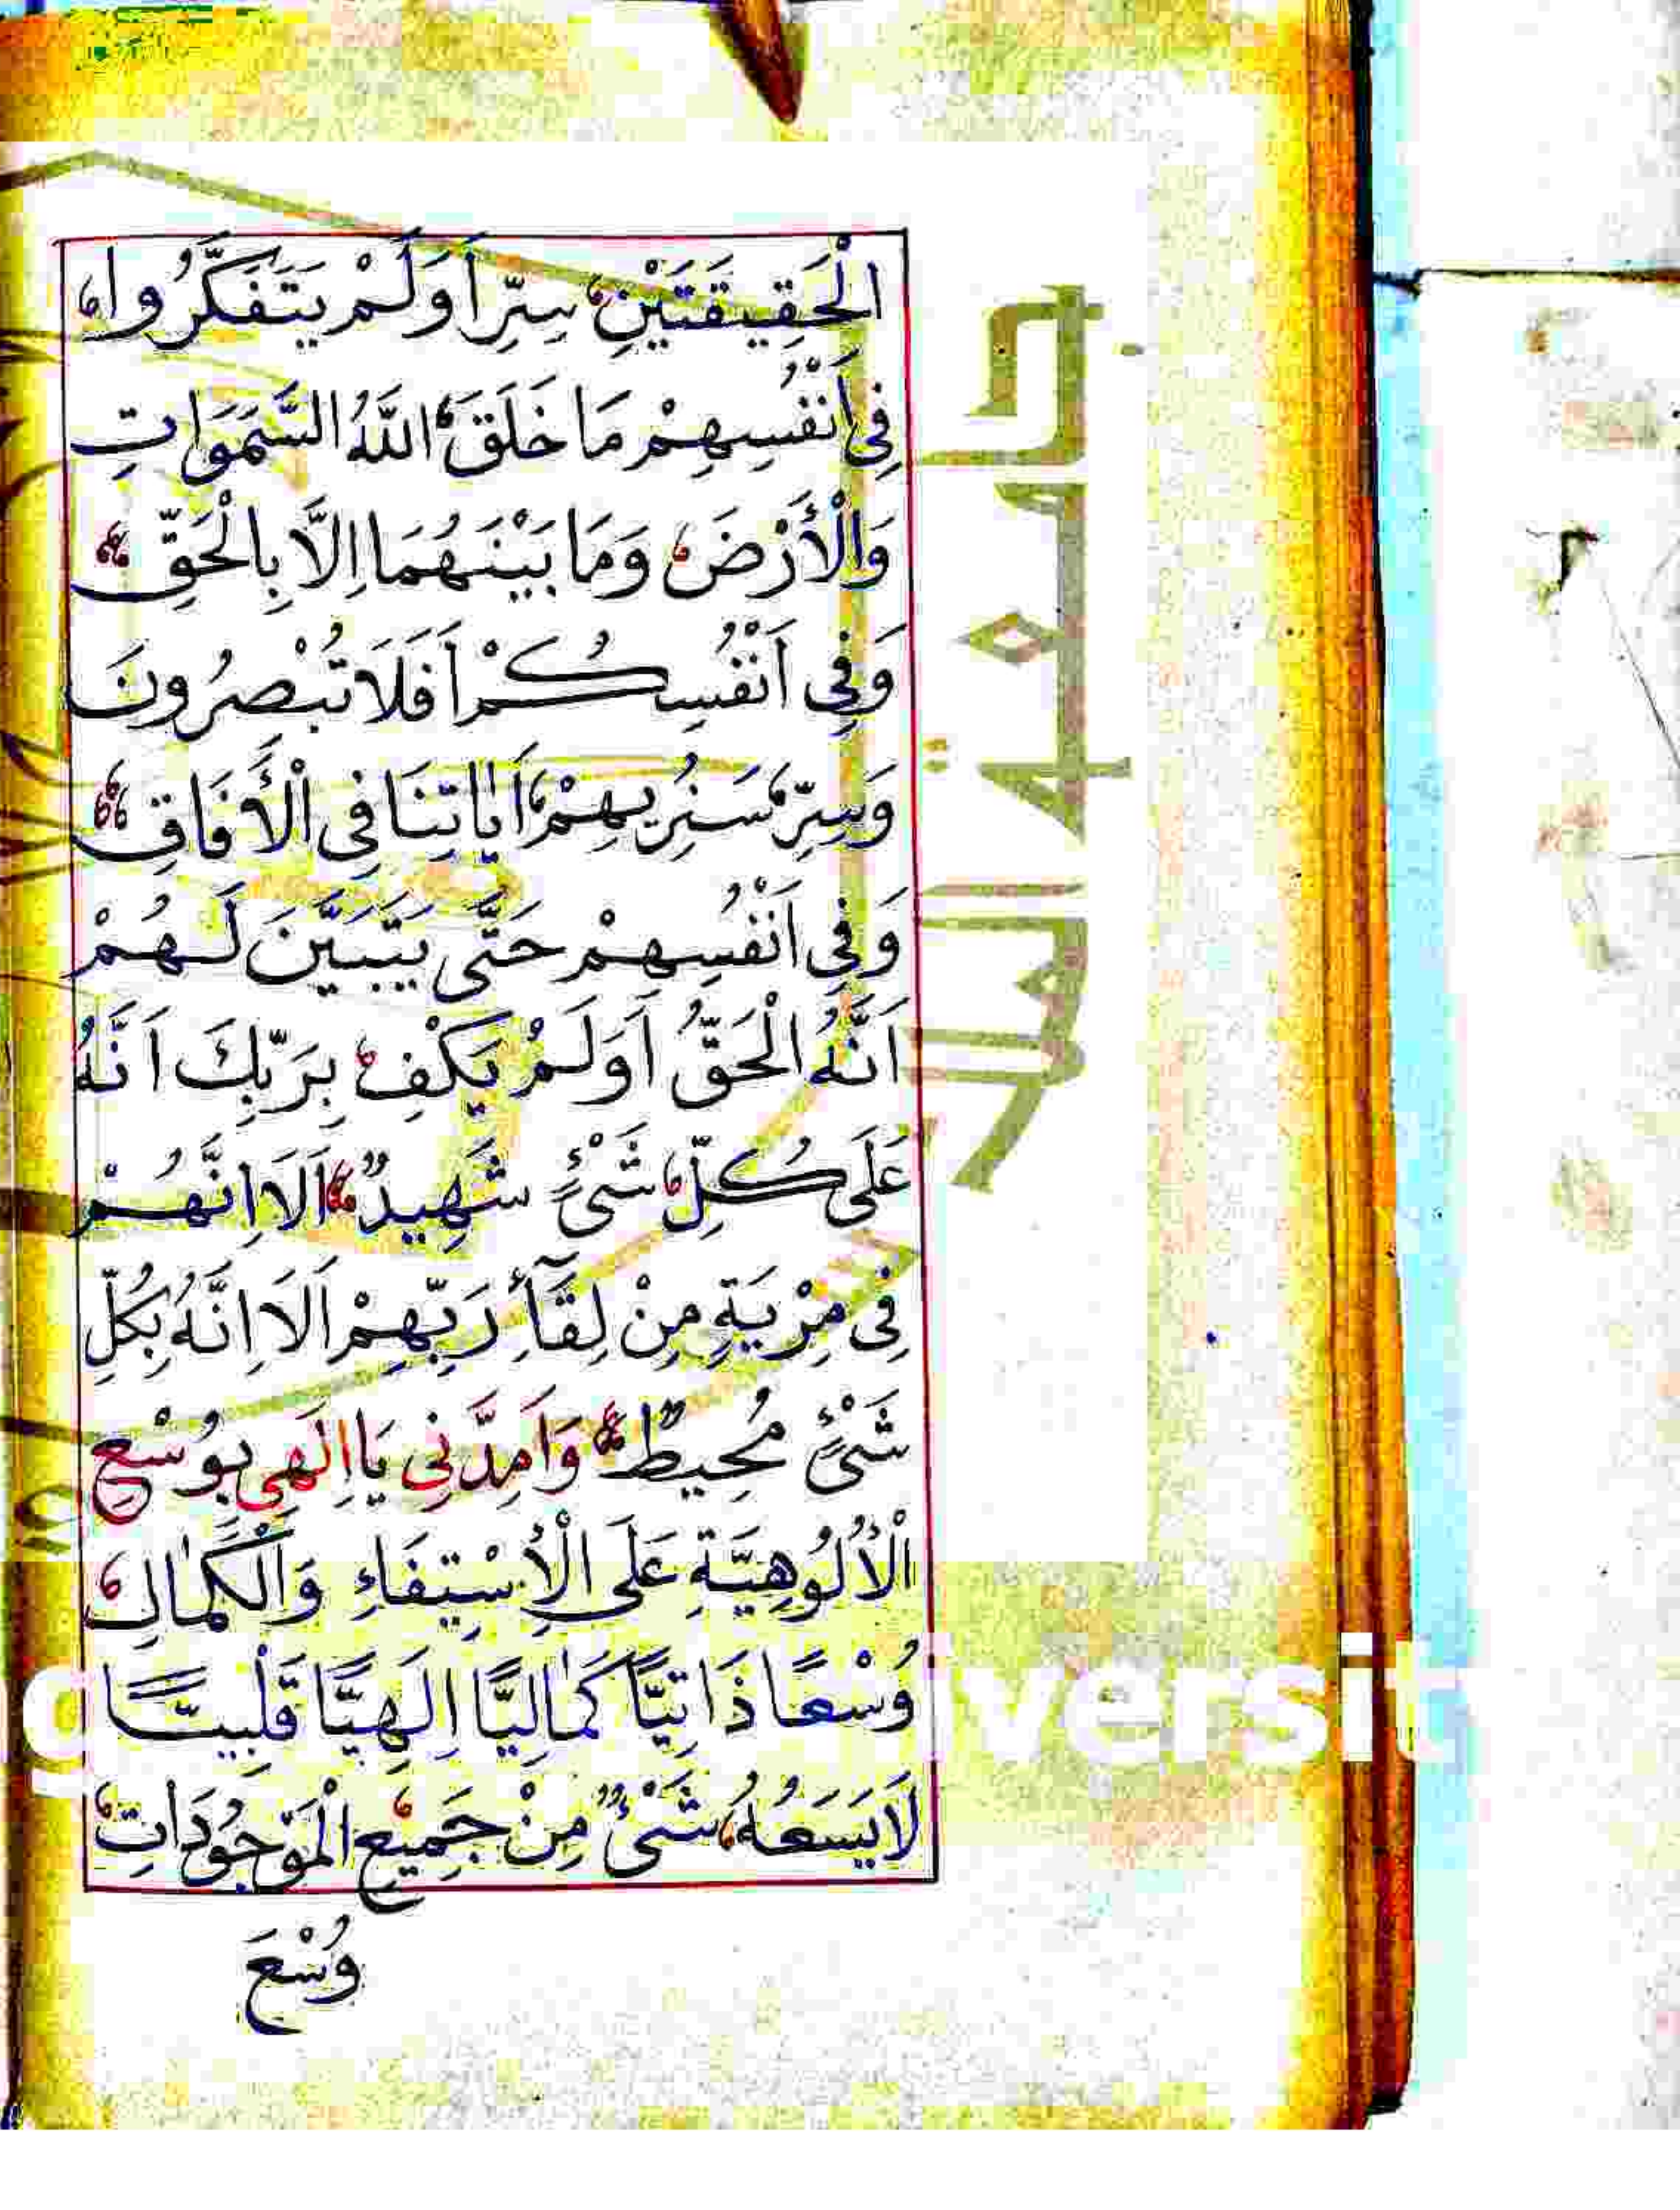 الْحَقِيقَتَيْنِ سِرِّ اَوَلَمْ يَتَفَكَّرُوا
فِي اَنْفُسِهِمْ مَا خَلَقَ اللَّهُ السَّمَوَاتِ
وَالْأَرْضَ وَمَا بَيْنَهُمَا اِلَّا بِالْحَقِّ
وَفِي اَنْفُسِكُمْ اَفَلَا تُبْصِرُونَ
وَسِرِّ سَنُرِيهِمْ اَيَاتِنَا فِي الْأَفَاقِ
وَفِي اَنْفُسِهِمْ حَتَّى يَتَبَيَّنَ لَهُمْ
اَنَّهُ الْحَقُّ اَوَلَمْ يَكْفِ بِرَبِّكَ اَنَّهُ
عَلَى كُلِّ شَيْءٍ شَهِيدٌ اَلَا اِنَّهُمْ
فِي مِرْيَةٍ مِنْ لِقَآءِ رَبِّهِمْ اَلَا اِنَّهُ بِكُلِّ
شَيْءٍ مُحِيطٌ وَاَمِدَّنِي يَا اِلَهِي بِوُسْعِ
الْأُلُوهِيَّةِ عَلَى الْاِسْتِيفَاءِ وَالْكَمَالِ
وُسْعًا ذَاتِيًّا كَمَالِيًّا اِلَهِيًّا قَلْبِيًّا
لَا يَسَعُهُ شَيْءٌ مِنْ جَمِيعِ الْمَوْجُودَاتِ
وُسْعَ
جامعة الملك
versit